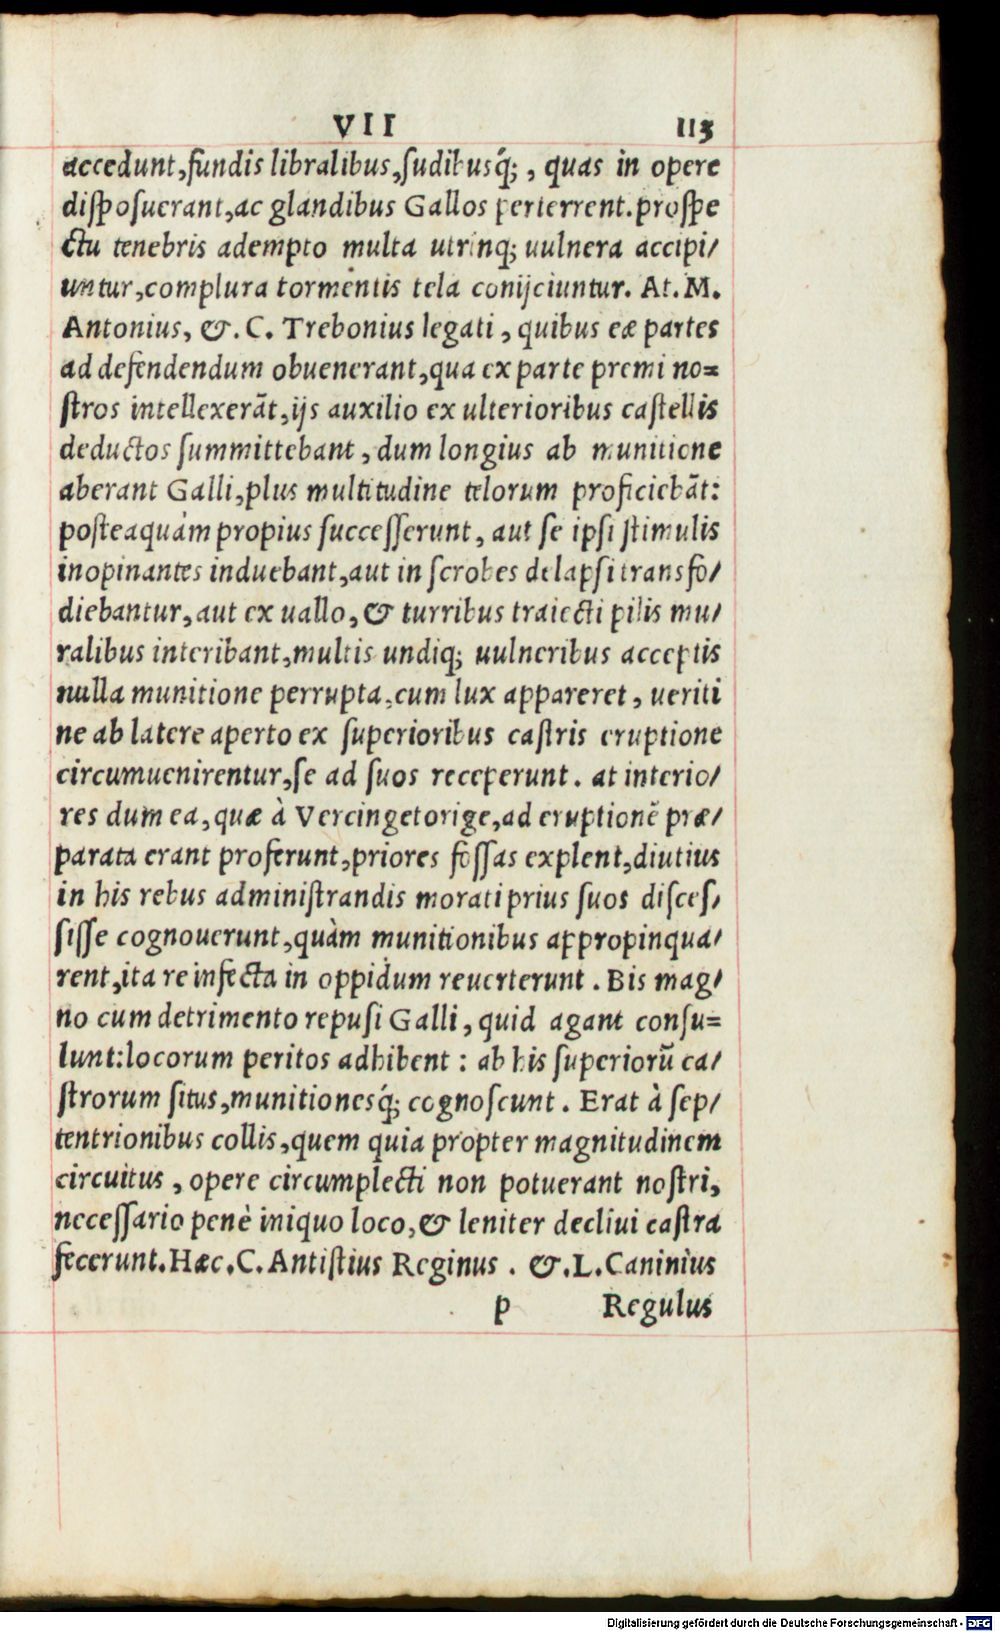 VII 113
accedunt, fundis libralibus, sudibusq́;, quas in opere
disposuerant, ac glandibus Gallos perterrent. prospe
ctu tenebris adempto multa utrinq; uulnera accipi/
untur, complura tormentis tela conijciuntur. At. M.
Antonius, &. C. Trebonius legati, quibus eæ partes
ad defendendum obuenerant, qua ex parte premi no=
stros intellexerãt, ijs auxilio ex ulterioribus castellis
deductos summittebant, dum longius ab munitione
aberant Galli, plus multitudine telorum proficiebãt:
posteaquàm propius successerunt, aut se ipsi stimulis
inopinantes induebant, aut in scrobes delapsi transfo/
diebantur, aut ex uallo, & turribus traiecti pilis mu/
ralibus interibant, multis undiq; uulneribus acceptis
nulla munitione perrupta, cum lux appareret, ueriti
ne ab latere aperto ex superioribus castris eruptione
circumuenirentur, se ad suos receperunt. at interio/
res dum ea, quæ à Vercingetorige, ad eruptionẽ præ/
parata erant proferunt, priores fossas explent, diutius
in his rebus administrandis morati prius suos disces/
sisse cognouerunt, quàm munitionibus appropinqua/
rent, ita re infecta in oppidum reuerterunt. Bis mag/
no cum detrimento repusi Galli, quid agant consu=
lunt: locorum peritos adhibent: ab his superiorũ ca/
strorum situs, munitionesq́; cognoscunt. Erat à sep/
tentrionibus collis, quem quia propter magnitudinem
circuitus, opere circumplecti non potuerant nostri,
necessario penè iniquo loco, & leniter decliui castra
fecerunt. Hæc. C. Antistius Reginus. &. L. Caninius
p Regulus
Digitalisierung gefördert durch die Deutsche Forschungsgemeinschaft - DFG